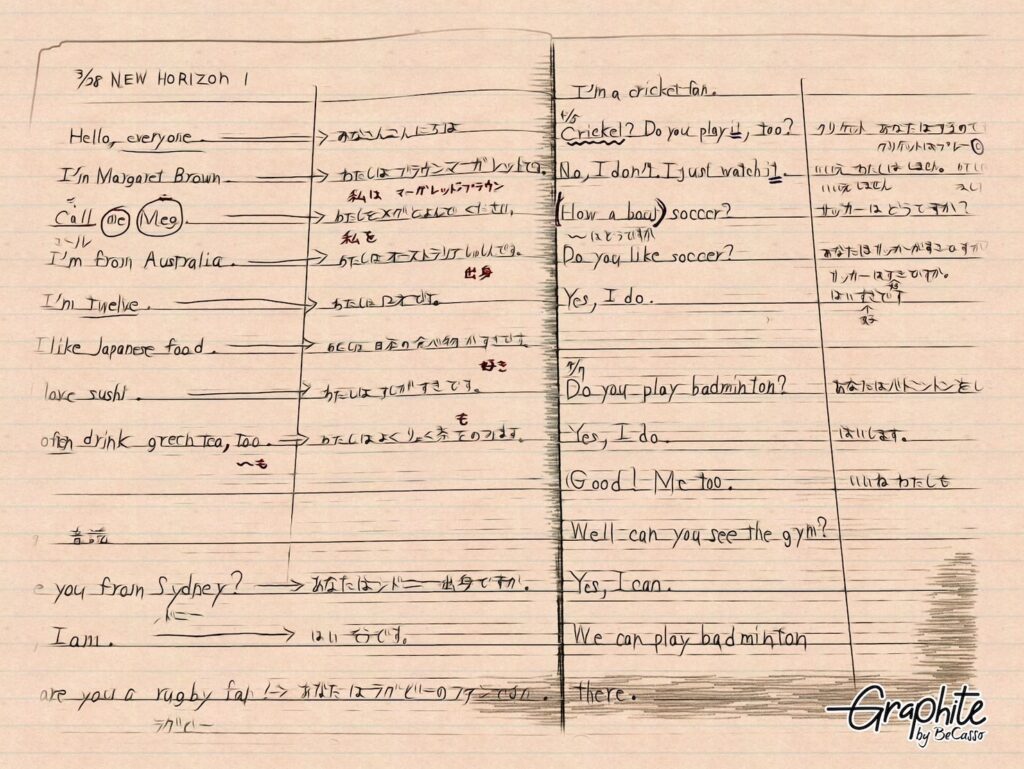 3/28 NEW HORIZON 1
Hello, everyone. → みなさんこんにちは
I'm Margaret Brown. → わたしはブラウンマーガレットです。
私は マーガレットブラウン
Call me Meg. → わたしをメグとよんでください。
コール 私を
I'm from Australia. → わたしはオーストラリアしゅしんです。
出身
I'm twelve. → わたしは12才です。
I like Japanese food. → わたしは日本の食べ物がすきです。
好き
love sushi. → わたしはすしがすきです。
も
often drink green tea, too. → わたしはよくりょく茶をのみます。
〜も
you from Sydney? → あなたはシドニー出身ですか。
I am. → はいそうです。
are you a rugby fan → あなたはラグビーのファンですか.
ラグビー
I'm a cricket fan.
4/5
Cricket? Do you play it, too? クリケット あなたは
クリケットはプレー
No, I don't. I just watch it. いいえ わたしはしません。
いいえしません
How a bout soccer? サッカーはどうですか?
〜はどうですか
Do you like soccer? あなたはサッカーがすきですか
サッカーはすきですか。
Yes, I do. はいすきです
好
4/7
Do you play badminton? あなたはバトントンをし
Yes, I do. はいします。
Good! Me too. いいね わたしも
Well can you see the gym?
Yes, I can.
We can play badminton
there.
Graphite
by BeCasso